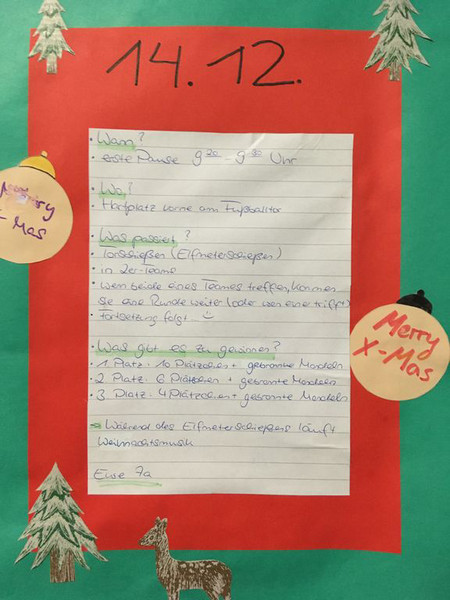 14.12.
• Wann?
• erste Pause 9 20 - 9 30 Uhr
• Wo?
• Hofplatz vorne am Fußballtor
• Was passiert?
• Torschießen (Elfmeterschießen)
• in 2er-Teams
• wen beide eines Teames treffen, kommen
sie eine Runde weiter (oder wen einer trifft)
• Fortsetzung folgt
• Was gibt es zu gewinnen?
• 1. Platz: 10 Plätzchen + gebrannte Mandeln
• 2. Platz: 6 Plätzchen + gebrannte Mandeln
• 3. Platz: 4 Plätzchen + gebrannte Mandeln
Während des Elfmeterschießens läuft
Weihnachtsmusik
Eure 7a
Merry
X-Mas
Merry
X-Mas